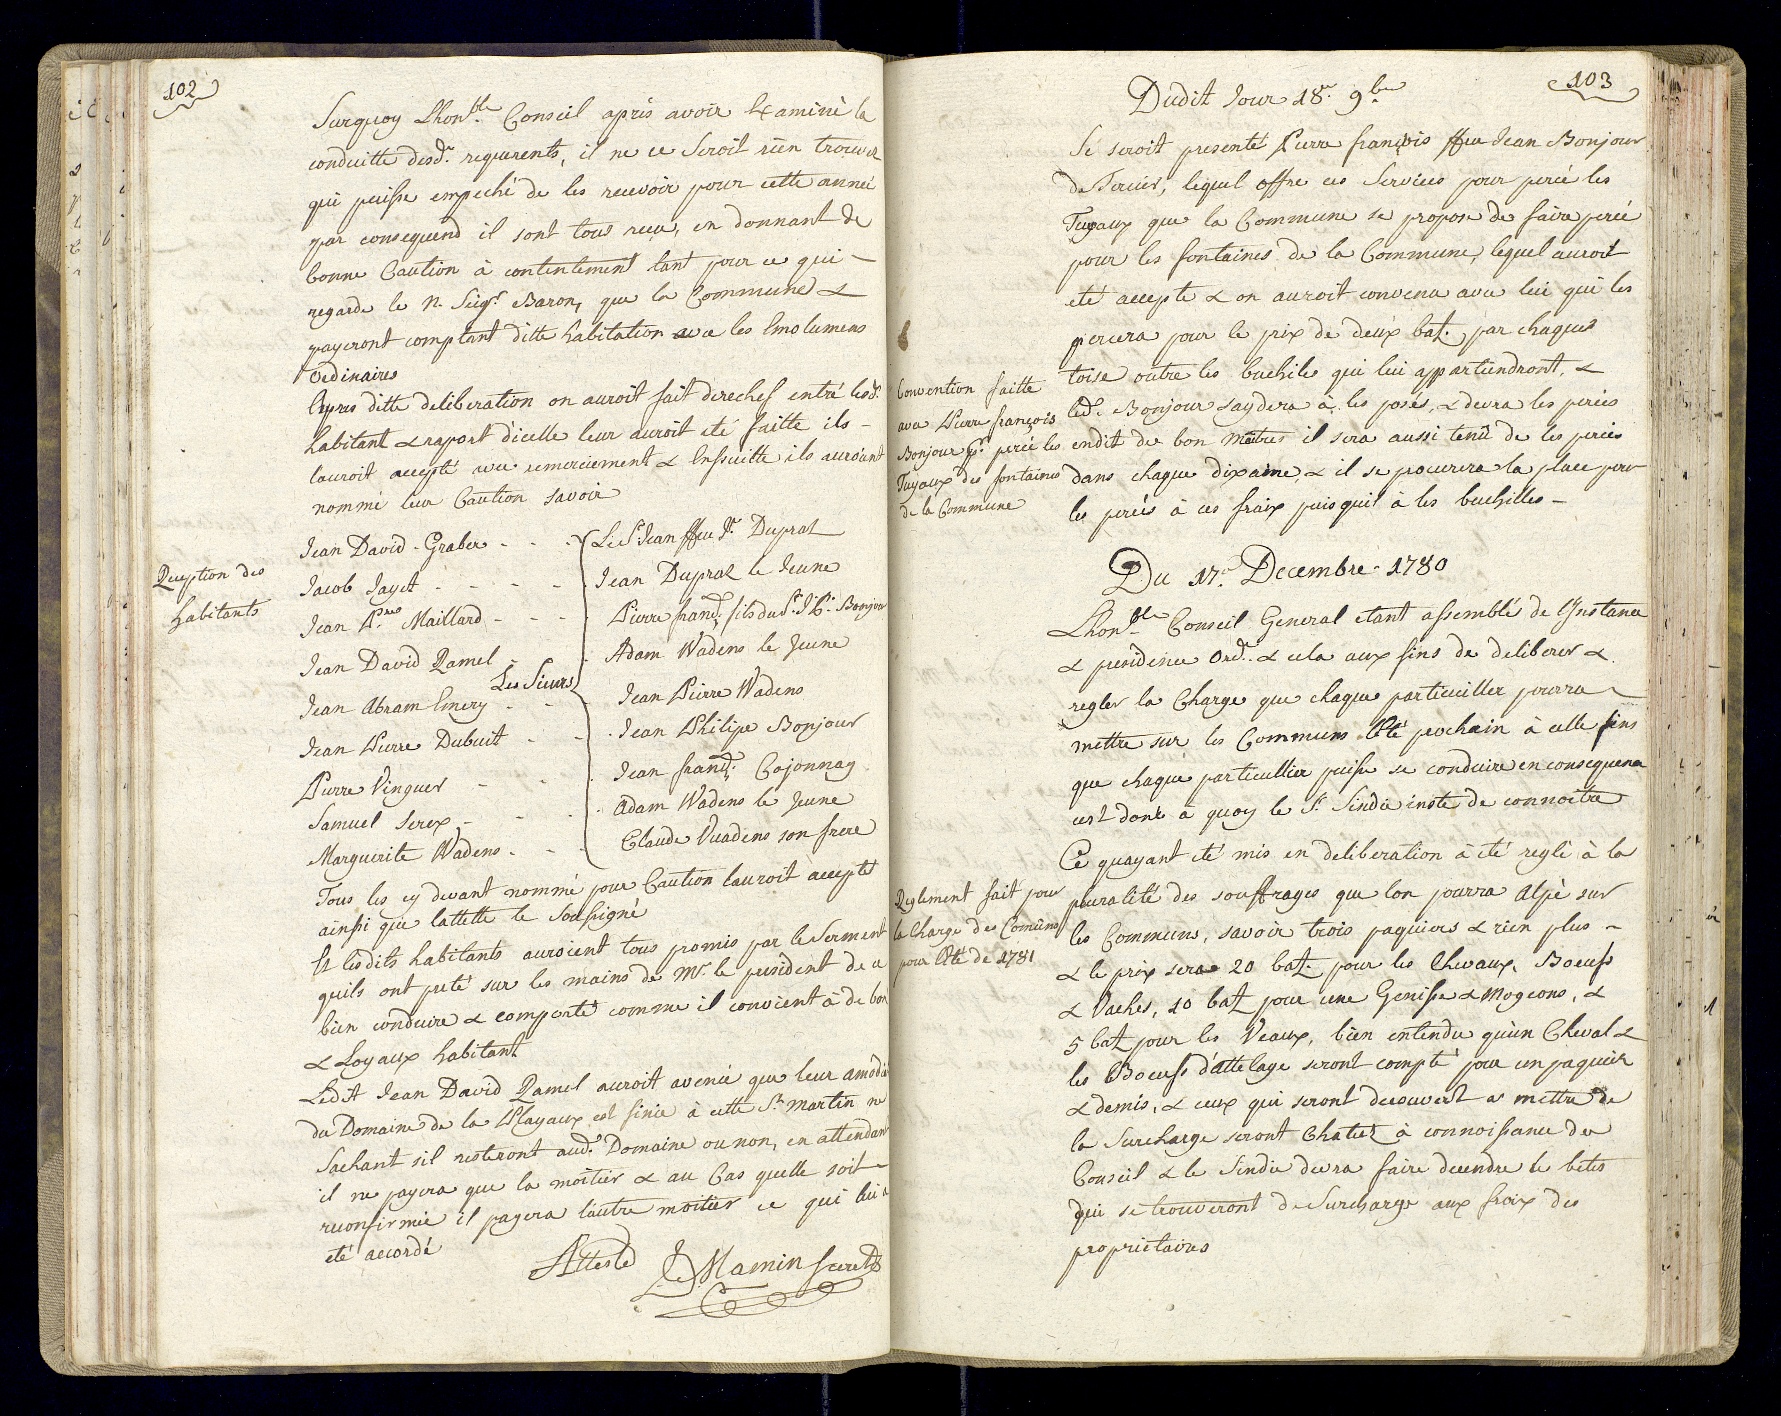 102
Surquoy Lhonble Conseil apris avoir Examiné la
conduitte desd. requerents, il ne ce Seroit rien trouver
qui puisse empeché de les recevoir pour cette anneé
par consequend il sont tous receu, en donnant de
bonne Caution à contentement tant pour ce qui
regarde le N. Seigr. Baron, que la Commune &
payeront comptant ditte habitation avec les Emolumens
Ordinaires
Apres ditte deliberation on auroit fait derechef entré lesd.
habitant & raport d'icelle leur auroit eté faitte ils
lauroit accepté avec remerciement & Ensuitte ils auroient
nommé leur Caution savoir
Reception des
habitants
Jean David Graber - - - Le Sr. Jean ffeu Jn. Dupraz
Jacob Jayet - - - - Jean Dupraz le Jeune
Jean Prre Maillard - - - Pierre franç. fils du Sr. J. P. Bonjour
Jean David Ramel - - Adam Wadens le Jeune
Les Sieurs
Jean Abram Emery - - - Jean Pierre Wadens
Jean Pierre Dubuit - - Jean Philipe Bonjour
Pierre Vinguer - - - Jean franç. Cojonnay
Samuel Serex - - - Adam Wadens le Jeune
Marguerite Wadens - - - Claude Vuadens son frere
Tous les cy devant nommé pour Caution lauroit accepté
ainsi que lattette le Soussigné
Et lesdits habitants auroient tous promis par le Serment
quils ont preté sur les mains de Mr. le president de ce
bien conduire & comporté comme il convient à de bon
& Loyaux habitant
Ledit Jean David Ramel auroit avencé que leur amodia
du Domaine de la Playaux est finie à cette St. Martin ne
Sachant sil resteront aud. Domaine ou non, en attendant
il ne payera que la moitier & au Cas quelle soit
reconfirmée il payera lautre moitier ce qui lui a
eté accordé
Attesté J. Mamin Secret.
103
Dudit Jour 18e. 9bre
Se seroit presenté Pierre françois ffeu Jean Bonjour
de Fercier, lequel offre ces Services pour percé les
Tuyaux que la Commune se propose de faire percé
pour les fontaines de la Commune, lequel auroit
eté accepté & on auroit convenu avec lui qui les
percera pour le prix de deux bat. par chaque
toise outre les buchile qui lui appartiendront, &
led. Bonjour saydera à les posés, & devra les percés
endit de bon Maitres il sera aussi tenû de les percés
dans chaque dixaine, & il se procurera la place pour
les percés à ces fraix puisquil à les buchilles -
Convention faitte
avec Pierre françois
Bonjour pr. percé les
Tuyaux des fontaines
de la Commune
Du 17e. Decembre 1780
Lhonble Conseil General etant assemblé de l'Instance
& presidence Ord. & cela aux fins de deliberer &
regler la Charge que chaque particuiller pourra
mettre sur les Communs lété prochain à celle fins
que chaque particullier puisse se conduire en consequence
cest donc à quoy le Sr. Sindic inste de connoitre
Ce quayant eté mis en deliberation à eté reglé à la
pluralité des souffrages que lon pourra Alpé sur
les Communs, savoir trois paquiers & rien plus -
& le prix sera 20 batz. pour les Chevaux, Boeufs
& Vaches, 10 batz pour une Genisse & Mogeons, &
5 batz pour les Veaux, bien entendu qu'un Cheval &
les Boeufs d'attelage seront compté pour un paquier
& demis, & ceux qui seront decouvert a mettre de
la Surcharge seront Chatiez à connoissance du
Conseil & le Sindic devra faire decendre le betes
qui se trouveront de Surcharge aux fraix des
proprietaires
Reglement fait pour
la Charge des Comûns
pour lété de 1781